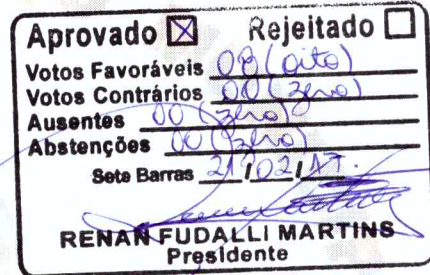 Aprovado ☒ Rejeitado ☐
Votos Favoráveis 08 (oito)
Votos Contrários 00 (zero)
Ausentes 00 (zero)
Abstenções 00 (zero)
Sete Barras 21/02/17.
RENAN FUDALLI MARTINS
Presidente